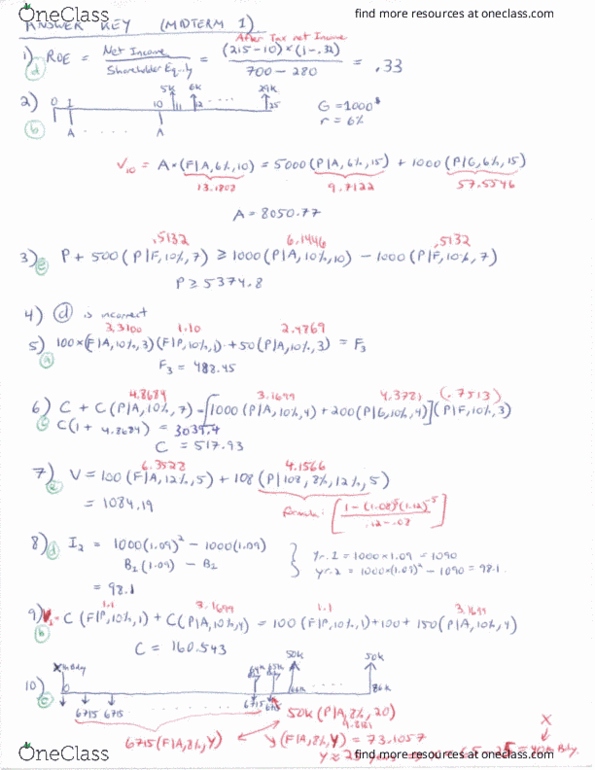 OneClass
find more resources at oneclass.com
ANSWER KEY (MIDTERM 1)
After Tax net Income
1) ROE = Net Income / Shareholder Equity = (215-10)×(1-.32) / 700-280 = .33
d
2) 0 1 10 5k 11 6k 12 .... 25
G = 1000$
r = 6%
b
A ..... A
V10 = A·(F|A,6%,10) = 5000(P|A,6%,15) + 1000(P|G,6%,15)
13.1802 9.7122 57.5546
A = 8050.77
.5132 6.1446 .5132
3) e P + 500(P|F,10%,7) ≥ 1000(P|A,10%,10) - 1000(P|F,10%,7)
P ≥ 5374.8
4) d is incorrect
3.3100 1.10 2.4869
5) 100×(F|A,10%,3)(F|P,10%,1) + 50(P|A,10%,3) = F3
a
F3 = 488.45
4.8684 3.1699 4.3781 (.7513)
6) C + C(P|A,10%,7) - [1000(P|A,10%,4) + 200(P|G,10%,4)](P|F,10%,3)
c C(1 + 4.8684) = 3039.4
C = 517.93
6.3528 4.1566
7) V = 100(F|A,12%,5) + 108(P|108,8%,12%,5)
= 1084.19
formula: [1-(1.08)^5(1.12)^-5 / .12-.08]
8) d I2 = 1000(1.09)² - 1000(1.09)
B1(1.09) - B2
= 98.1
Yr.1 = 1000×1.09 = 1090
yr.2 = 1000×(1.09)² - 1090 = 98.1
1.1 3.1699 1.1 3.1699
9) C(F|P,10%,1) + C(P|A,10%,4) = 100(F|P,10%,1)+100+150(P|A,10%,4)
b
C = 160.543
10) c
50k 50k
6715 6715 6715
50k(P|A,8%,20)
6715(F|A,8%,Y) (F|A,8%,Y) = 73.1057
OneClass
find more resources at oneclass.com